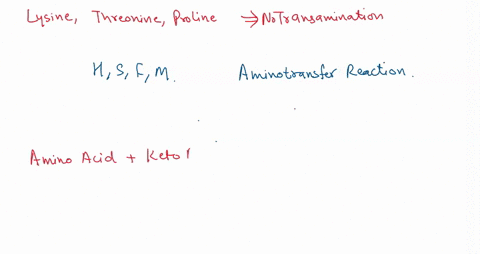 Lysine, Threonine, Proline ⇒ No Transamination
H, S, F, M. Aminotransfer Reaction.
Amino Acid + Keto